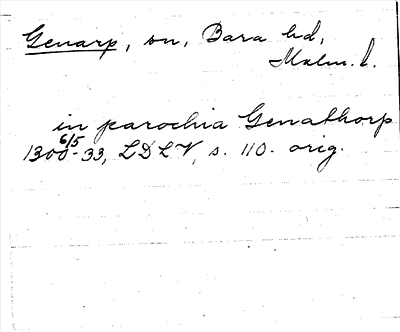 Genarp, sn, Bara hd,
Malm. l.
in parochia Genathorp
1300 6/5 - 33, LDLV, s. 110. orig.